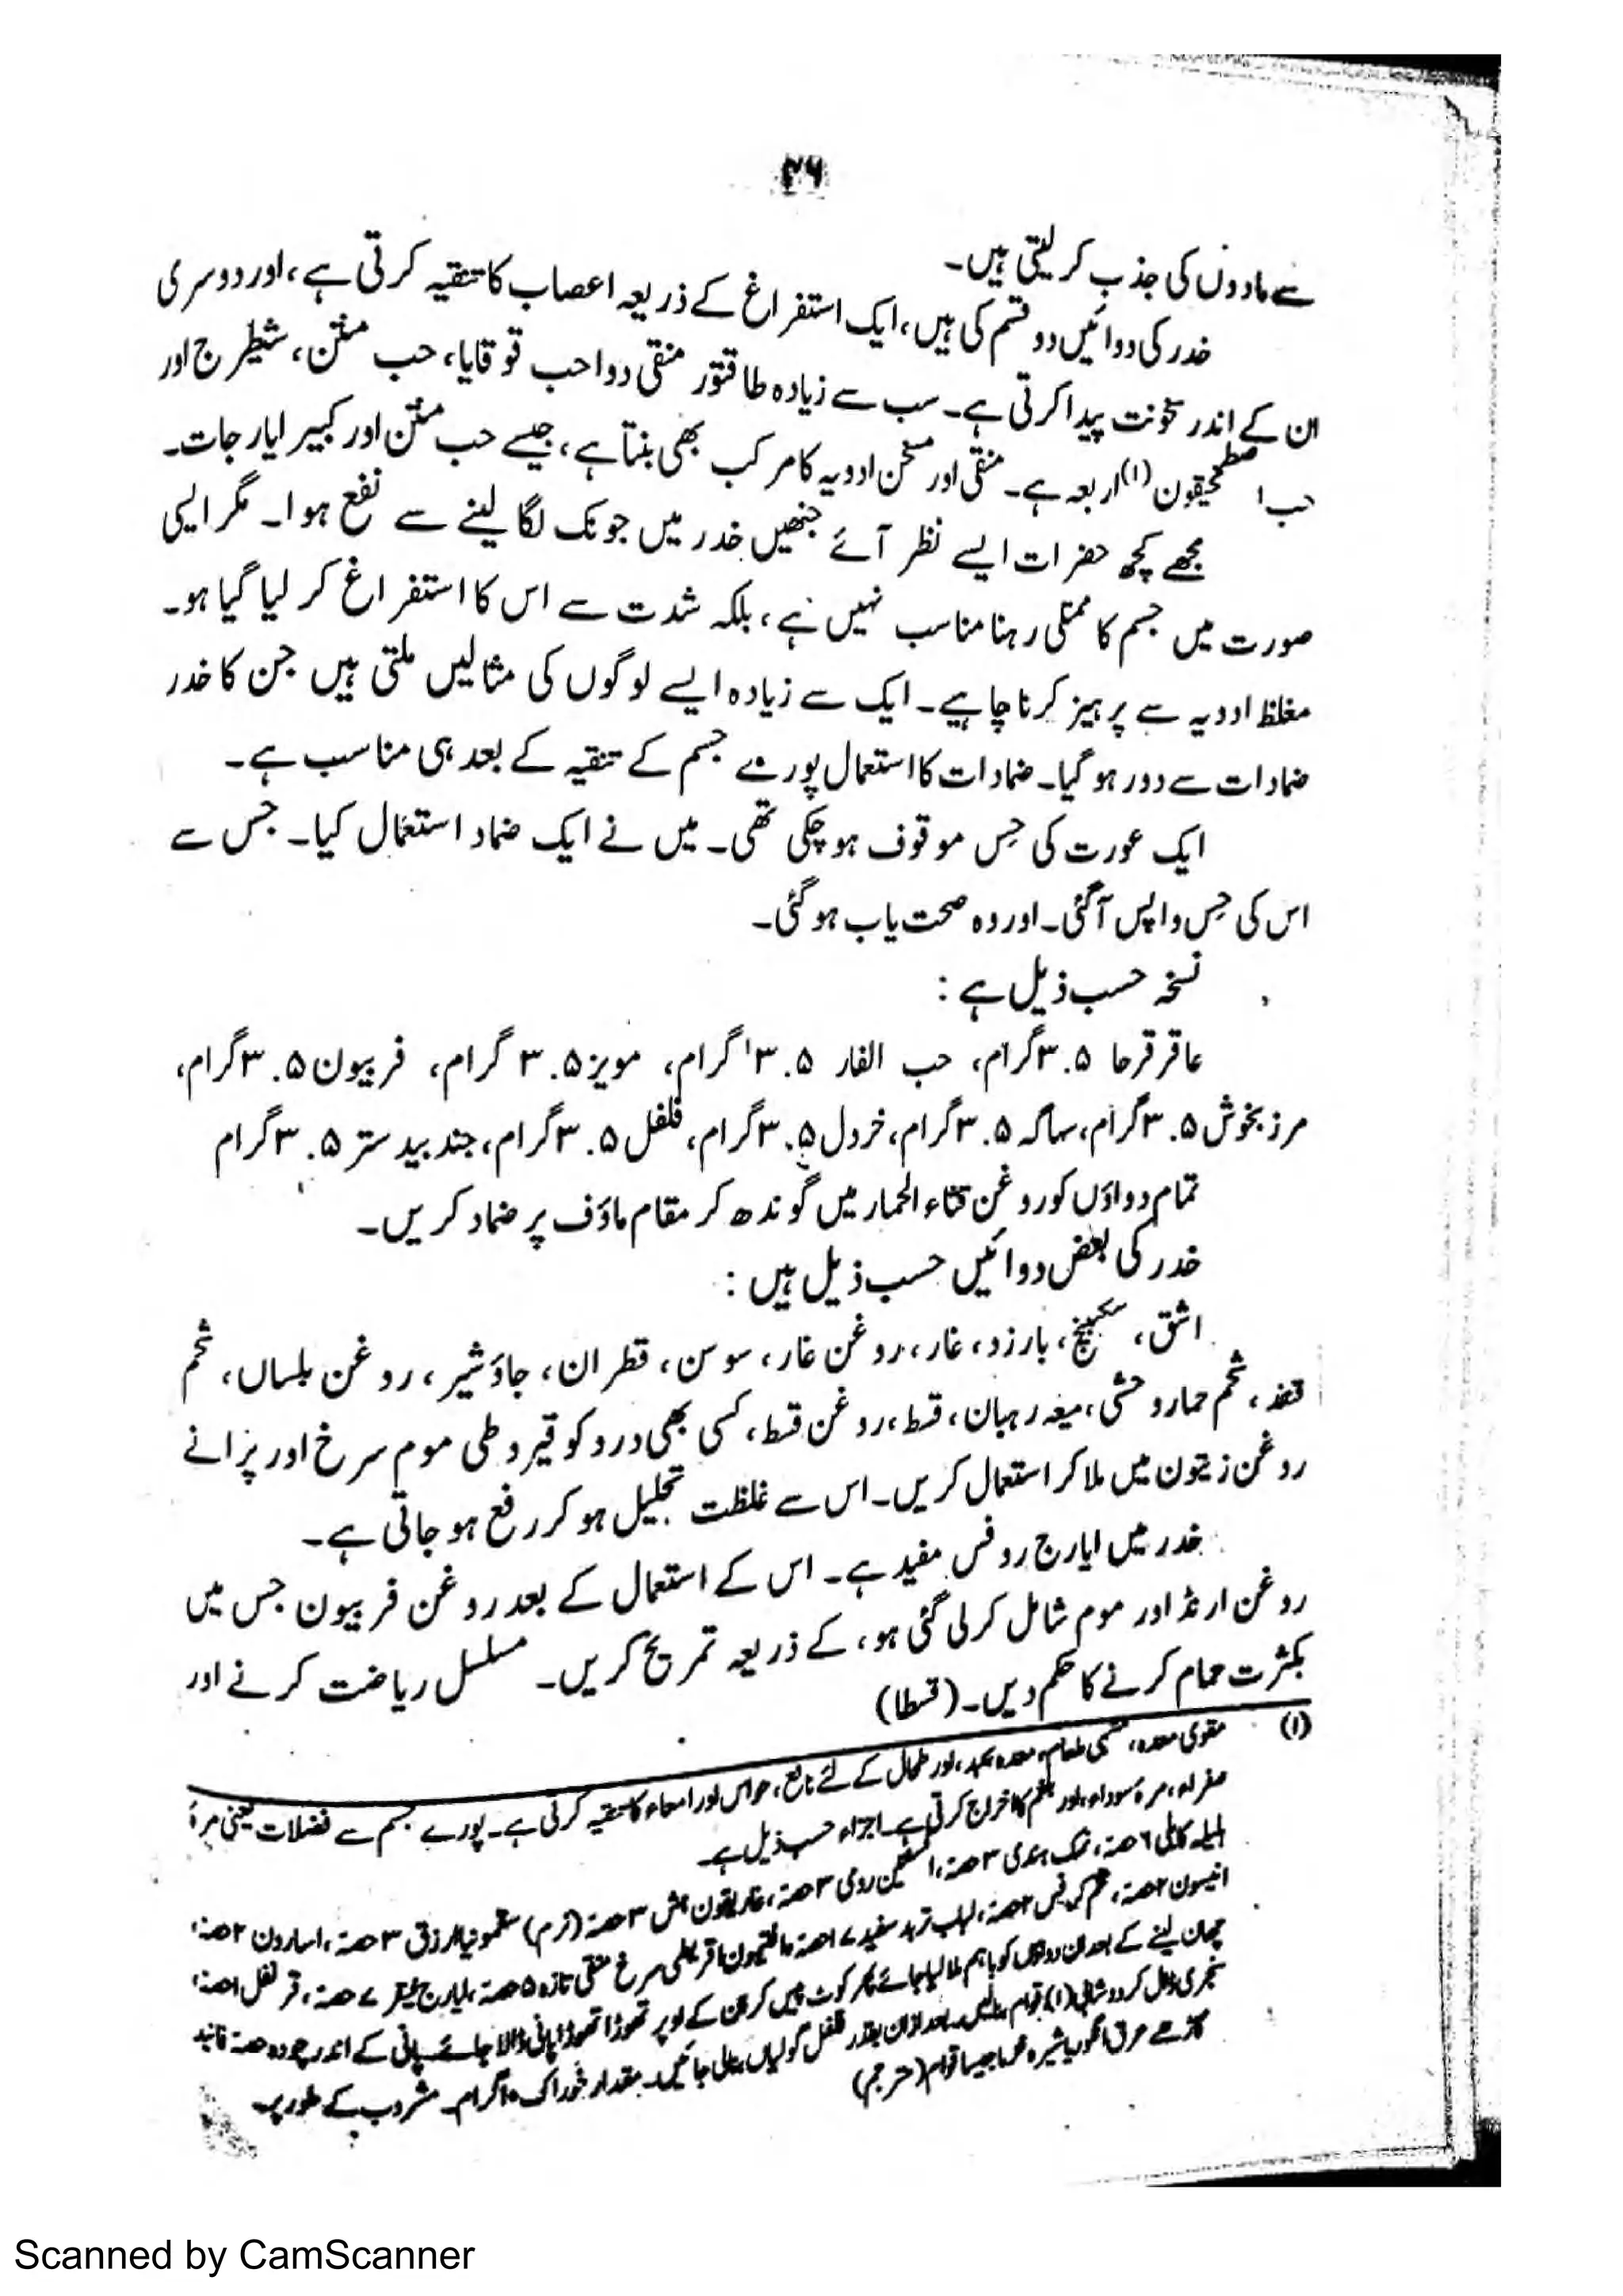 ۲۶
سے مادوں کی جذب کر لیتی ہیں۔
خدر کی دوائیں دو قسم کی ہیں، ایک استفراغ کے ذریعہ اعصاب کا تنقیہ کرتی ہے، اور دوسری
ان کے اندر سخونت پیدا کرتی ہے۔ سب سے زیادہ طاقتور منقی دوا حب قوقایا، حب منتن، شیطرج اور
حب اصطمخیقون (۱) اربعہ ہے۔ منقی اور مسخن ادویہ کا مرکب بھی بنتا ہے، جیسے حب منتن اور کبیر ایارجات۔
مجھے کچھ حضرات ایسے نظر آئے جنھیں خدر میں جونک لگا لینے سے نفع ہوا۔ مگر ایسی
صورت میں جسم کا ممتلی رہنا مناسب نہیں ہے، بلکہ شدت سے اس کا استفراغ کر لیا گیا ہو۔
مغلظ ادویہ سے پرہیز کرنا چاہیے۔ ایک سے زیادہ ایسے لوگوں کی مثالیں ملتی ہیں جن کا خدر
ضمادات سے دور ہو گیا۔ ضمادات کا استعمال پورے جسم کے تنقیہ کے بعد ہی مناسب ہے۔
ایک عورت کی حِس موقوف ہو چکی تھی۔ میں نے ایک ضماد استعمال کیا۔ جس سے
اس کی حِس واپس آگئی۔ اور وہ صحت یاب ہو گئی۔
نسخہ حسب ذیل ہے :
عاقرقرحا ۳.۵ گرام، حب الغار ۳.۵ گرام، مویز ۳.۵ گرام، فربیون ۳.۵ گرام،
مرزنجوش ۳.۵ گرام، سہاگہ ۳.۵ گرام، خردل ۳.۵ گرام، فلفل ۳.۵ گرام، جندبیدستر ۳.۵ گرام
تمام دواؤں کو روغن قثاء الحمار میں گوندھ کر مقام ماؤف پر ضماد کریں۔
خدر کی بعض دوائیں حسب ذیل ہیں :
اشق، سکبینج، بارزد، غار، روغن غار، سوسن، قطران، جاؤشیر، روغن بلساں، شحم
قنفذ، شحم حمار وحشی، میعہ رہبان، قسط، روغن قسط، کسی بھی درد کو قیروطی موم سرخ اور پرانے
روغن زیتون میں ملا کر استعمال کریں۔ اس سے غلظت تحلیل ہو کر رفع ہو جاتی ہے۔
خدر میں ایارج روفس مفید ہے۔ اس کے استعمال کے بعد روغن فربیون جس میں
روغن ارنڈ اور موم شامل کرلی گئی ہو، کے ذریعہ تمریخ کریں۔ مسلسل ریاضت کرنے اور
بکثرت حمام کرنے کا حکم دیں۔ (قسطا)
(۱) مقوی معدہ، مشہی طعام، معدہ، کبد، اور طحال کے لئے نافع، حواس اور امعاء کا تنقیہ کرتی ہے۔ پورے جسم سے فضلات یعنی مرۂ
صفراء، مرۂ سوداء، اور بلغم کا اخراج کرتی ہے۔ اجزاء حسب ذیل ہے۔
ہلیلہ کابلی ۶ حصہ، نمک ہندی ۳ حصہ، افسنتین رومی ۳ حصہ، غاریقون ہش ۳ حصہ (نرم) سقمونیا ازرق ۳ حصہ، اسارون ۲ حصہ،
انیسون ۲ حصہ، تخم کرفس ۲ حصہ، لباب تربد سفید ۷ حصہ، افتیمون اقریطی سرخ منقی تازہ ۵ حصہ، ایارج فیقرا ۷ حصہ، قرنفل ۱ حصہ،
چھان لینے کے بعد ان دواؤں کو باہم ملا لیا جائے پھر کوٹ پیس کر ان کے اوپر تھوڑا تھوڑا پانی ڈالا جائے۔ پانی کے اندر چودہ حصہ فانید
سنجری داخل کر دوشابی (۱) قوام بنالیں۔ بعد ازاں بقدر فلفل گولیاں بنالی جائیں۔ مقدار خوراک ۱۰ گرام۔ مشروب کے طور پر۔
گاڑھے عرق انگور یا شیرہ جیسا قوام (مترجم)
Scanned by CamScanner